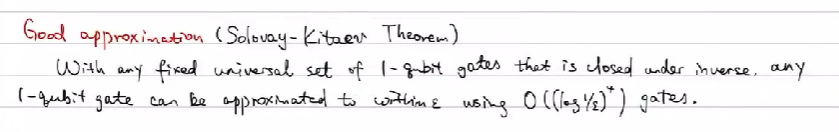 Good approximation (Solovay-Kitaev Theorem)
With any fixed universal set of 1-qubit gates that is closed under inverse, any
1-qubit gate can be approximated to within ε using O((log 1/ε)⁴) gates.